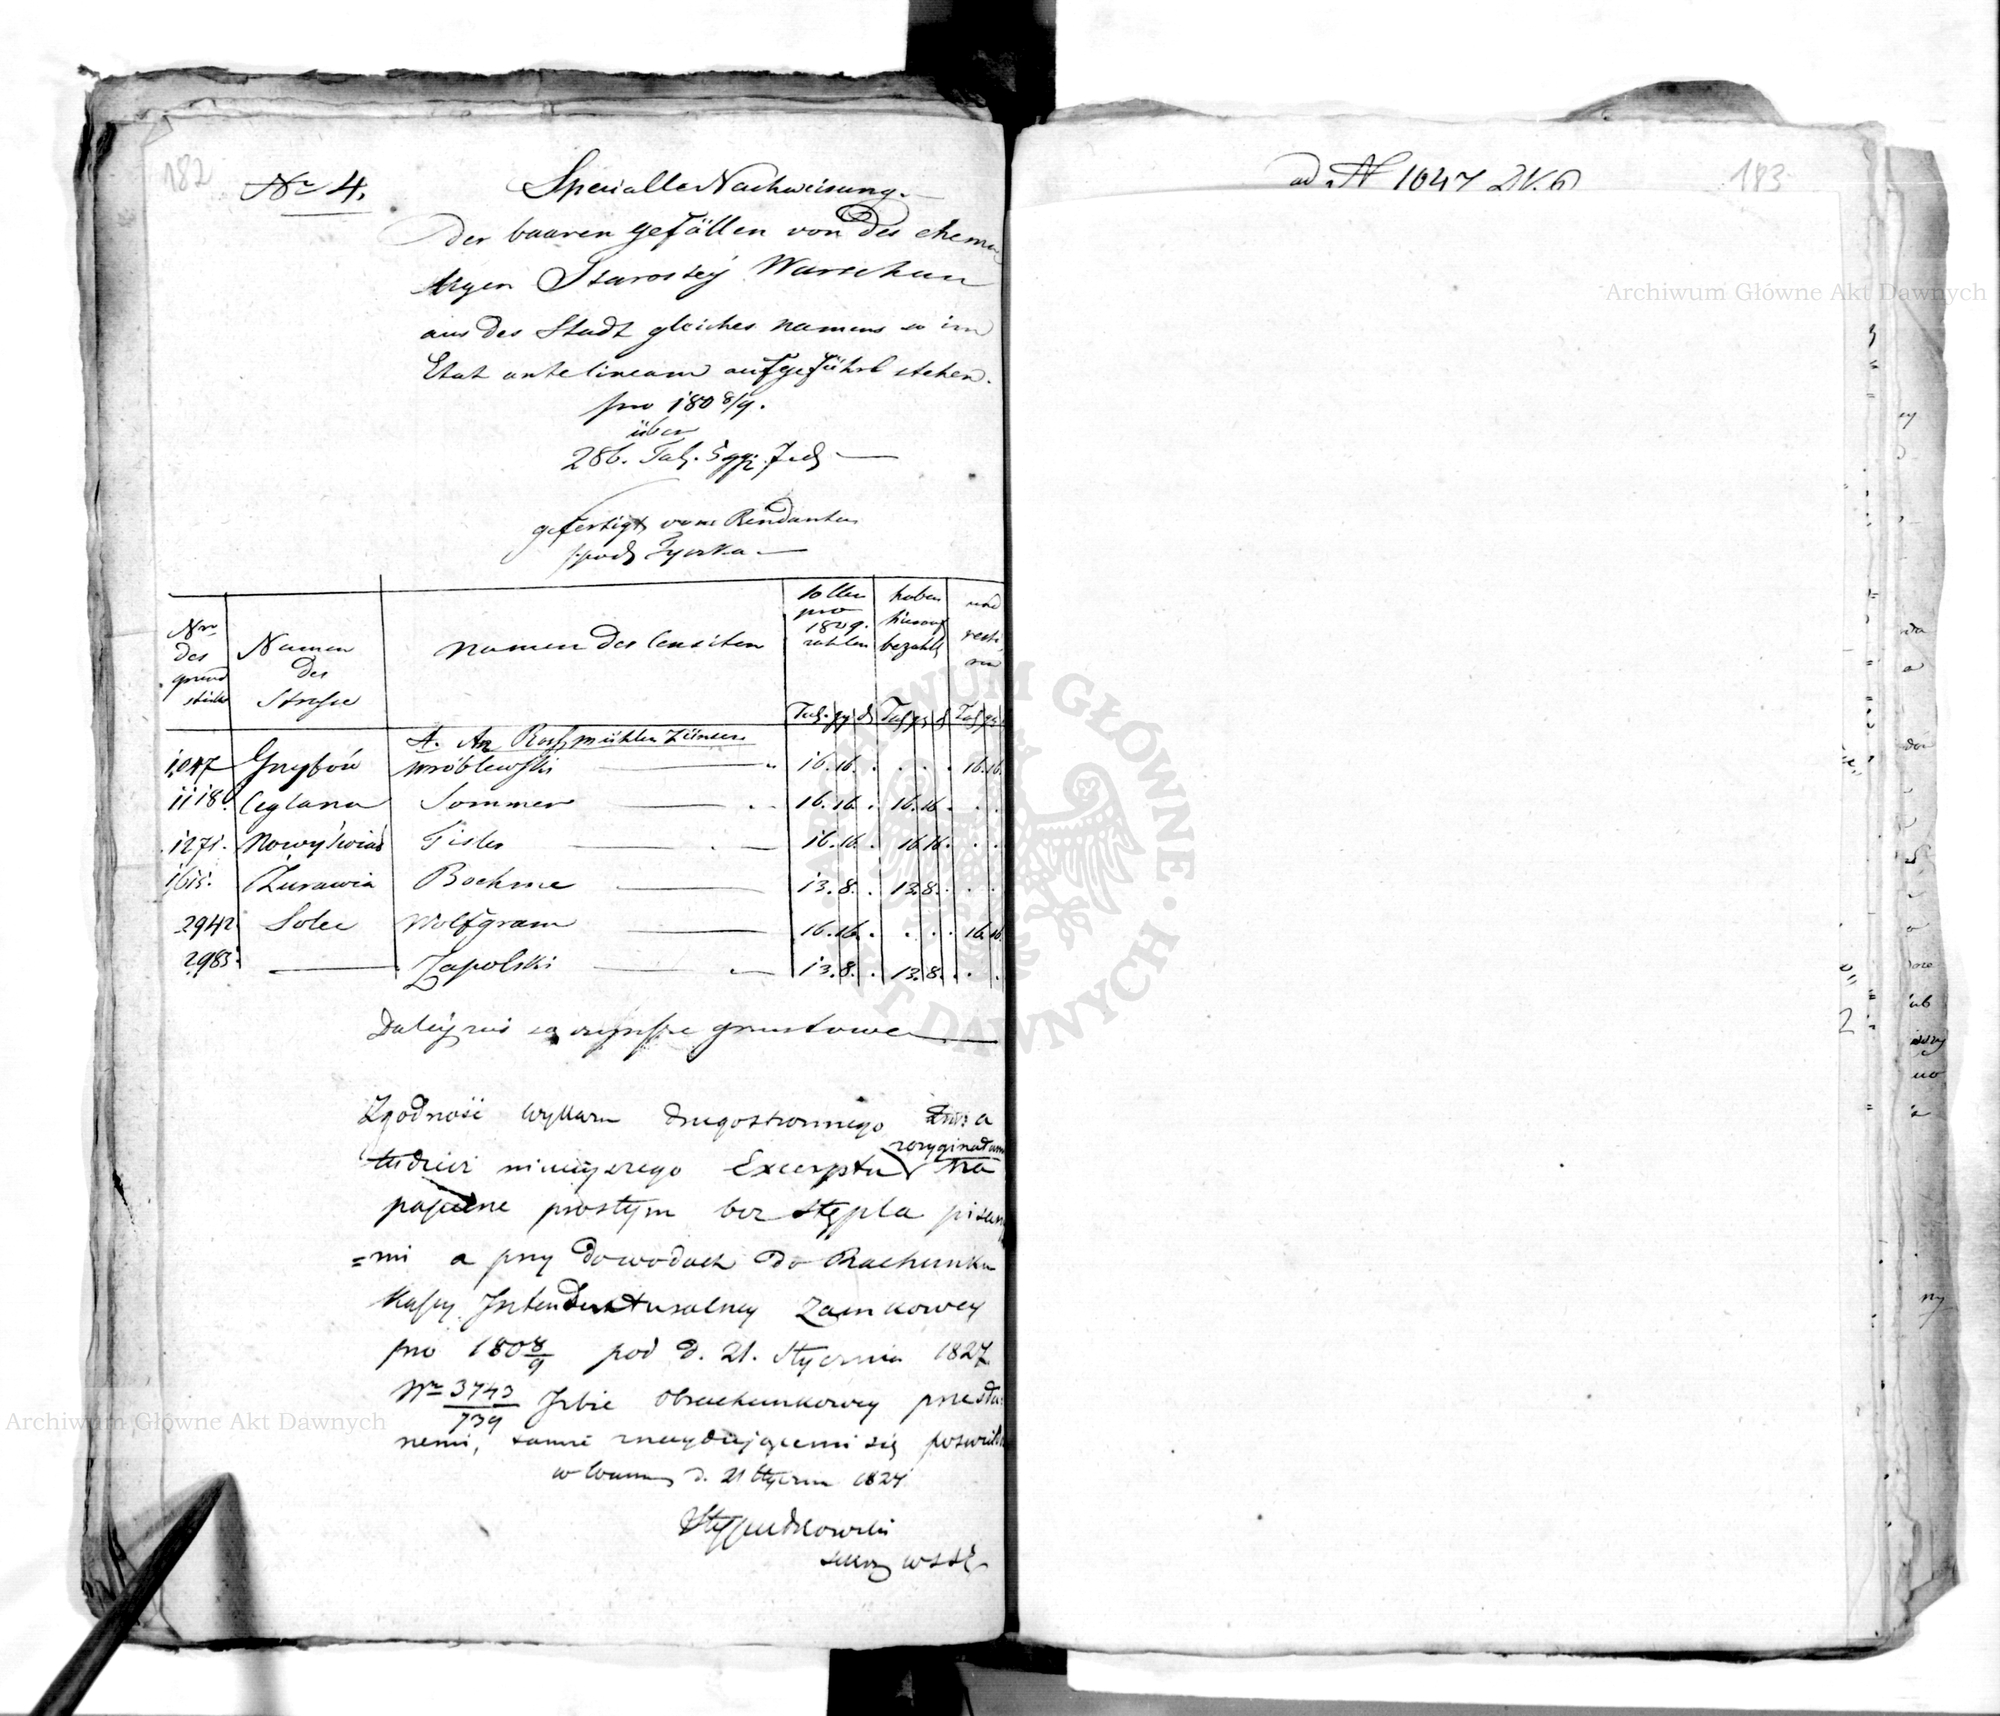 182
Nro 4.
Specielle Nachweisung.
der baaren gefällen von des ehema
ligen Starostey Warschau
aus des Stadt gleiches namens so im
Etat ante lineam aufgeführt stehen.
pro 180 8/9.
über
286. Tal. 5 ggr. 7 d
gefertigt vom Rendanten
Nro des grund stücks
Namen des Strasse
Namen des Censiten
sollen pro 1809. zahlen
haben hierauf bezahlt
und resti ren
Tal. gg d Tal gg d Tal gg
A. An Rossmühlen Zinsen
1047 Grzybów Wróblewski 16. 16. . . . . 16. 16.
1118. Ceglana Sommer 16. 16. . 16. 16. . . .
1271. Nowy Świat Tisler 16. 16. . 16. 16. . . .
1615. Żurawia Boehme 13. 8. . 13. 8. . . .
2942 Solec Wolfgram 16. 16. . . . . 16. 16.
2983. Zapolski 13. 8. . 13. 8. . . .
Daléy zaś są czynsze gruntowe
Zgodność wykazu drugostronnego a
tudzież ninieyszego Excerptu z oryginałami na
papierze prostym bez stępla pisany
=mi a przy dowodach do Rachunku
Kassy Intendenturalney Zamkowey
pro 180 8/9 pod d. 21. Stycznia 1827
Nro 3743/739 Izbie Obrachunkowey przesła
nemi, tamże znaydującemi się
d. 21 Stycznia 1827
ad N 1047
183
Archiwum Główne Akt Dawnych
Archiwum Główne Akt Dawnych
ARCHIWUM GŁÓWNE AKT DAWNYCH